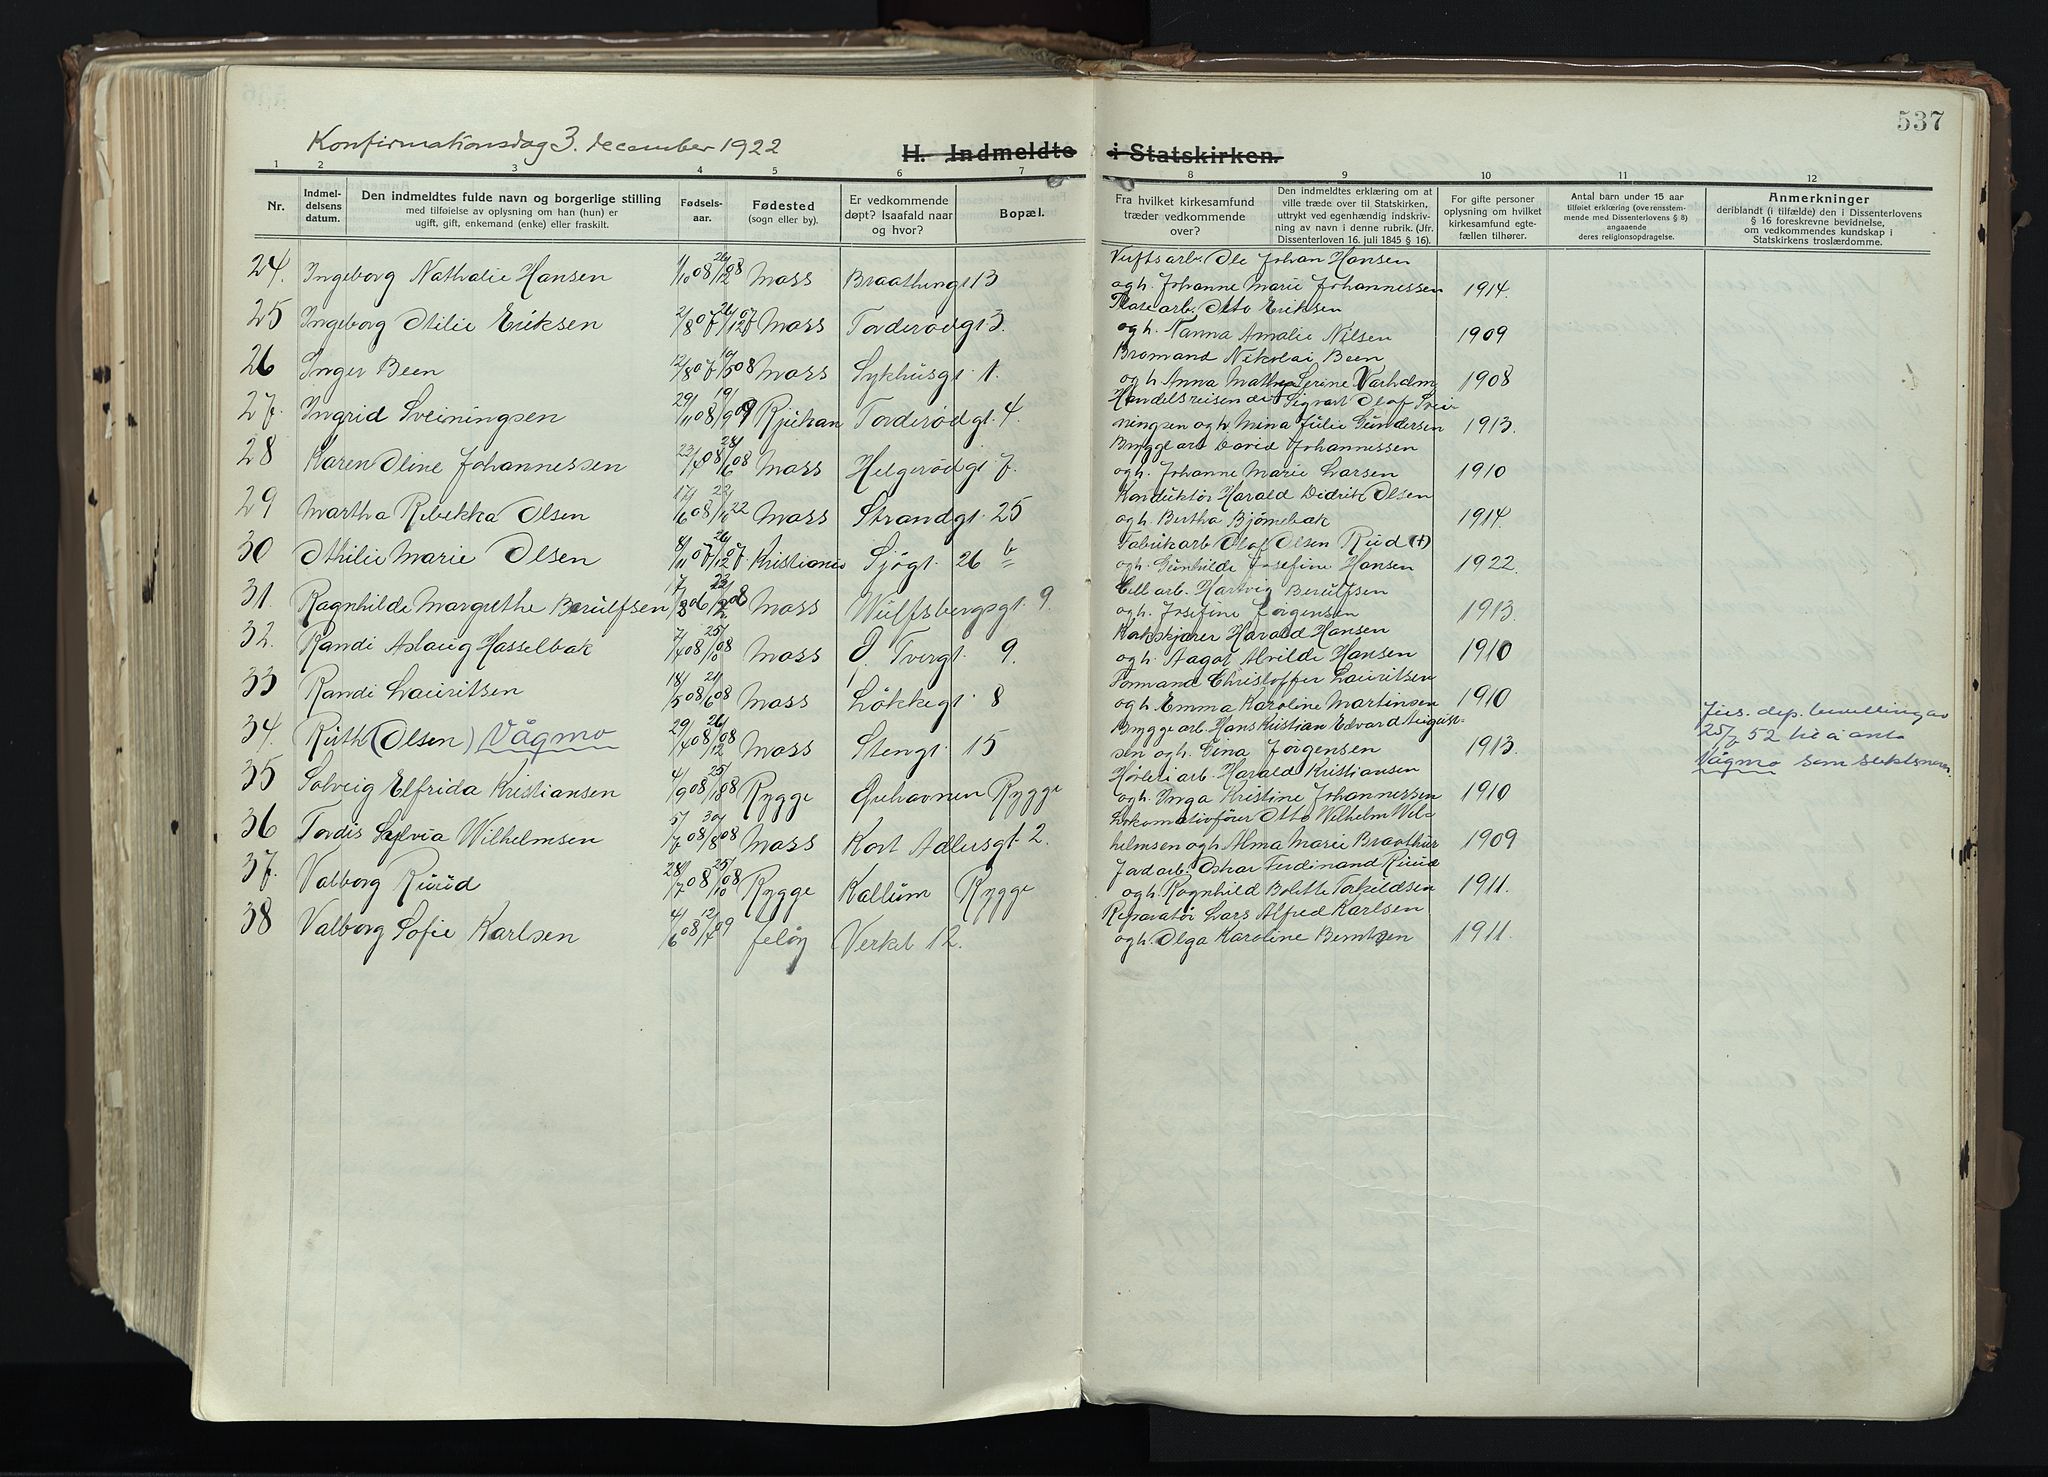 537
Konfirmationsdag 3. december 1922
H. Indmeldte i Statskirken.
1 2 3 4 5 6 7 8 9 10 11 12
Nr.
Indmel-
delsens
datum.
Den indmeldtes fulde navn og borgerlige stilling
med tilføielse av oplysning om han (hun) er
ugift, gift, enkemand (enke) eller fraskilt.
Fødsels-
aar.
Fødested
(sogn eller by).
Er vedkommende
døpt? Isaafald naar
og hvor?
Bopæl.
Fra hvilket kirkesamfund
træder vedkommende
over?
Den indmeldtes erklæring om at
ville træde over til Statskirken,
uttrykt ved egenhændig indskriv-
ning av navn i denne rubrik. (Jfr.
Dissenterloven 16. juli 1845 § 16).
For gifte personer
oplysning om hvilket
kirkesamfund egte-
fællen tilhører.
Antal barn under 15 aar
tilføiet erklæring (overensstem-
mende med Dissenterlovens § 8)
angaaende
deres religionsopdragelse.
Anmerkninger
deriblandt (i tilfælde) den i Dissenterlovens
§ 16 foreskrevne bevidnelse,
om vedkommendes kundskap i
Statskirkens troslærdomme.
24. Ingeborg Nathalie Hansen 1/10 08 26/12 08 Moss Braathengt 13 Ole Johan Hansen
ogh. Johanne Marie Johannessen 1914.
25 Ingeborg Otilie Eriksen 2/8 07 26/12 07 Moss Torderødgt 3. Otto Eriksen
ogh. Nanna Amalie Nilsen 1909
26 Inger Been 12/8 07 10/5 08 Moss Sykhusgt. 1. Bromand Nikolai Been
ogh Anna Mathea Serine Varholm 1908
27. Ingrid Sveinungsen 29/11 08 19/9 09 Rjukan Torderødgt. 4. Handelsreisende Sigvart Olaf Svei
ningsen ogh. Mina Julie Gundersen 1913.
28 Karen Oline Johannessen 23/4 08 28/6 08 Moss Helgerødgt 7. Byggearb David Johannessen
ogh. Johanne Marie Larsen 1910
29 Martha Rebekka Olsen 17/6 08 22/10 22 Moss Strandgt. 25 Konduktør Harald Didrik Olsen
ogh. Bertha Bjørnebak 1914.
30 Othilie Marie Olsen 8/11 07 26/12 07 Kristiania Sjøgt. 26 b Fabrikarb Olaf Olsen Ruud (†)
ogh. Gunhilde Josefine Hansen 1922.
31. Ragnhilde Margrethe Berulfsen 17/3 06 23/2 08 Moss Wulfsbergsgt. 9. Cell arb. Hartvig Berulfsen
ogh. Josefine Jørgensen 1913.
32. Randi Aslaug Hasselbak 7/4 08 25/10 08 Moss Ø. Tvergt. 9. Korkskjærer Harald Hansen
ogh. Aagot Alvilde Hansen 1910
33 Randi Lauritsen 18/5 08 21/6 08 Moss Løkkegt. 8 Formand Christoffer Lauritsen
ogh Emma Karoline Martinsen 1910
34. Ruth (Olsen) Vågmo 29/4 08 26/12 08 Moss Stengt. 15 Bygge arb. Hans Kristian Edvard August-
sen ogh. Gina Jørgensen 1913.
Jus. dep. bevilling av
25/7 52 til å anta
Vågmo som slektsnavn.
35 Solveig Elfrida Kristiansen 4/9 08 25/10 08 Rygge Grehavnen Rygge Høvleri arb. Harald Kristiansen
ogh. Ynga Kristine Johannessen 1910
36 Tordis Sylvia Wilhelmsen 5/7 08 30/8 08 Moss Kort Adlersgt. 2. Lokomotivfører Otto Wilhelm Wil-
helmsen ogh Alma Marie Braathur 1909
37. Valborg Ruud 28/7 08 25/10 08 Rygge Kallum Rygge Jordarb. Oskar Ferdinand Ruud
ogh. Ragnhild Bolette Torkildsen 1911.
38 Valborg Sofie Karlsen 4/6 08 12/4 09 Jeløy Verket 12. Reparatør Lars Alfred Karlsen
ogh. Olga Karoline Berntzen 1911.